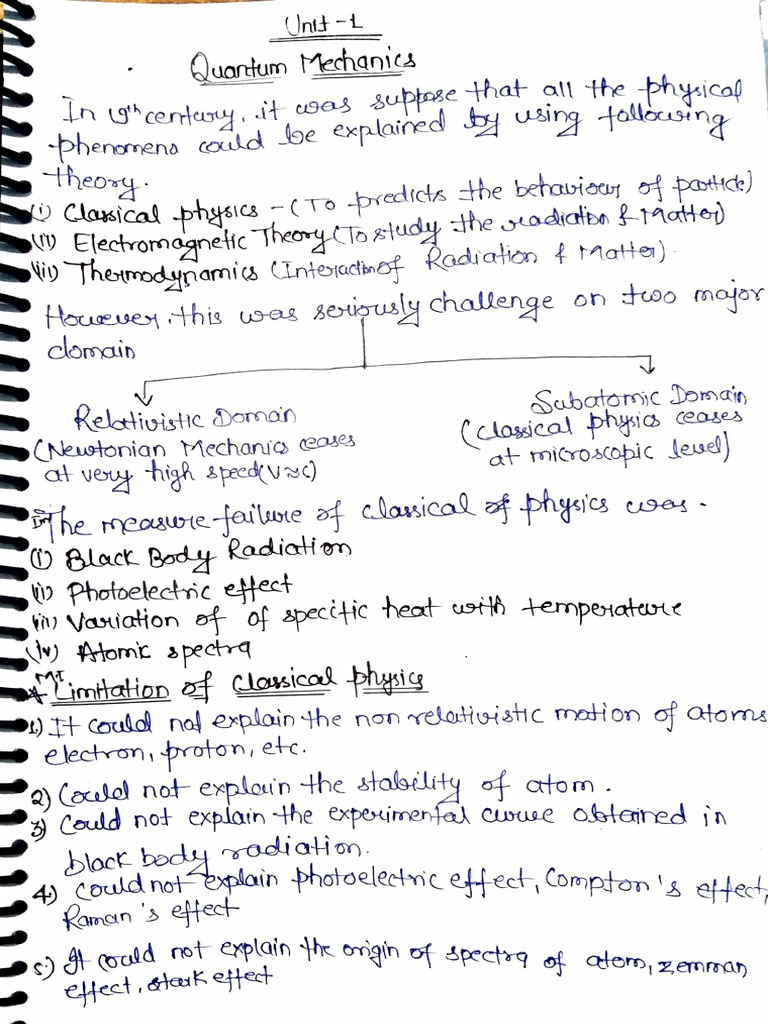 Unit-1
Quantum Mechanics
In 19th century, it was suppose that all the physical
phenomena could be explained by using following
theory.
(i) Classical physics - (To predicts the behaviour of particle)
(ii) Electromagnetic Theory (To study the radiation & Matter)
(iii) Thermodynamics (Interaction of Radiation & Matter).
However, this was seriously challenge on two major
domain
Relativistic Domain
(Newtonian Mechanics ceases
at very high speed (v≈c)
Subatomic Domain
(Classical physics ceases
at microscopic level)
The measure failure of classical of physics was.
(i) Black Body Radiation
(ii) Photoelectric effect
(iii) Variation of of specific heat with temperature
(iv) Atomic spectra
M.I
* Limitation of classical physics
1.) It could not explain the non relativistic motion of atoms
electron, proton, etc.
2) Could not explain the stability of atom.
3) Could not explain the experimental curve obtained in
black body radiation.
4.) Could not explain photoelectric effect, Compton's effect,
Raman's effect
5.) It could not explain the origin of spectra of atom, zemman
effect, stark effect